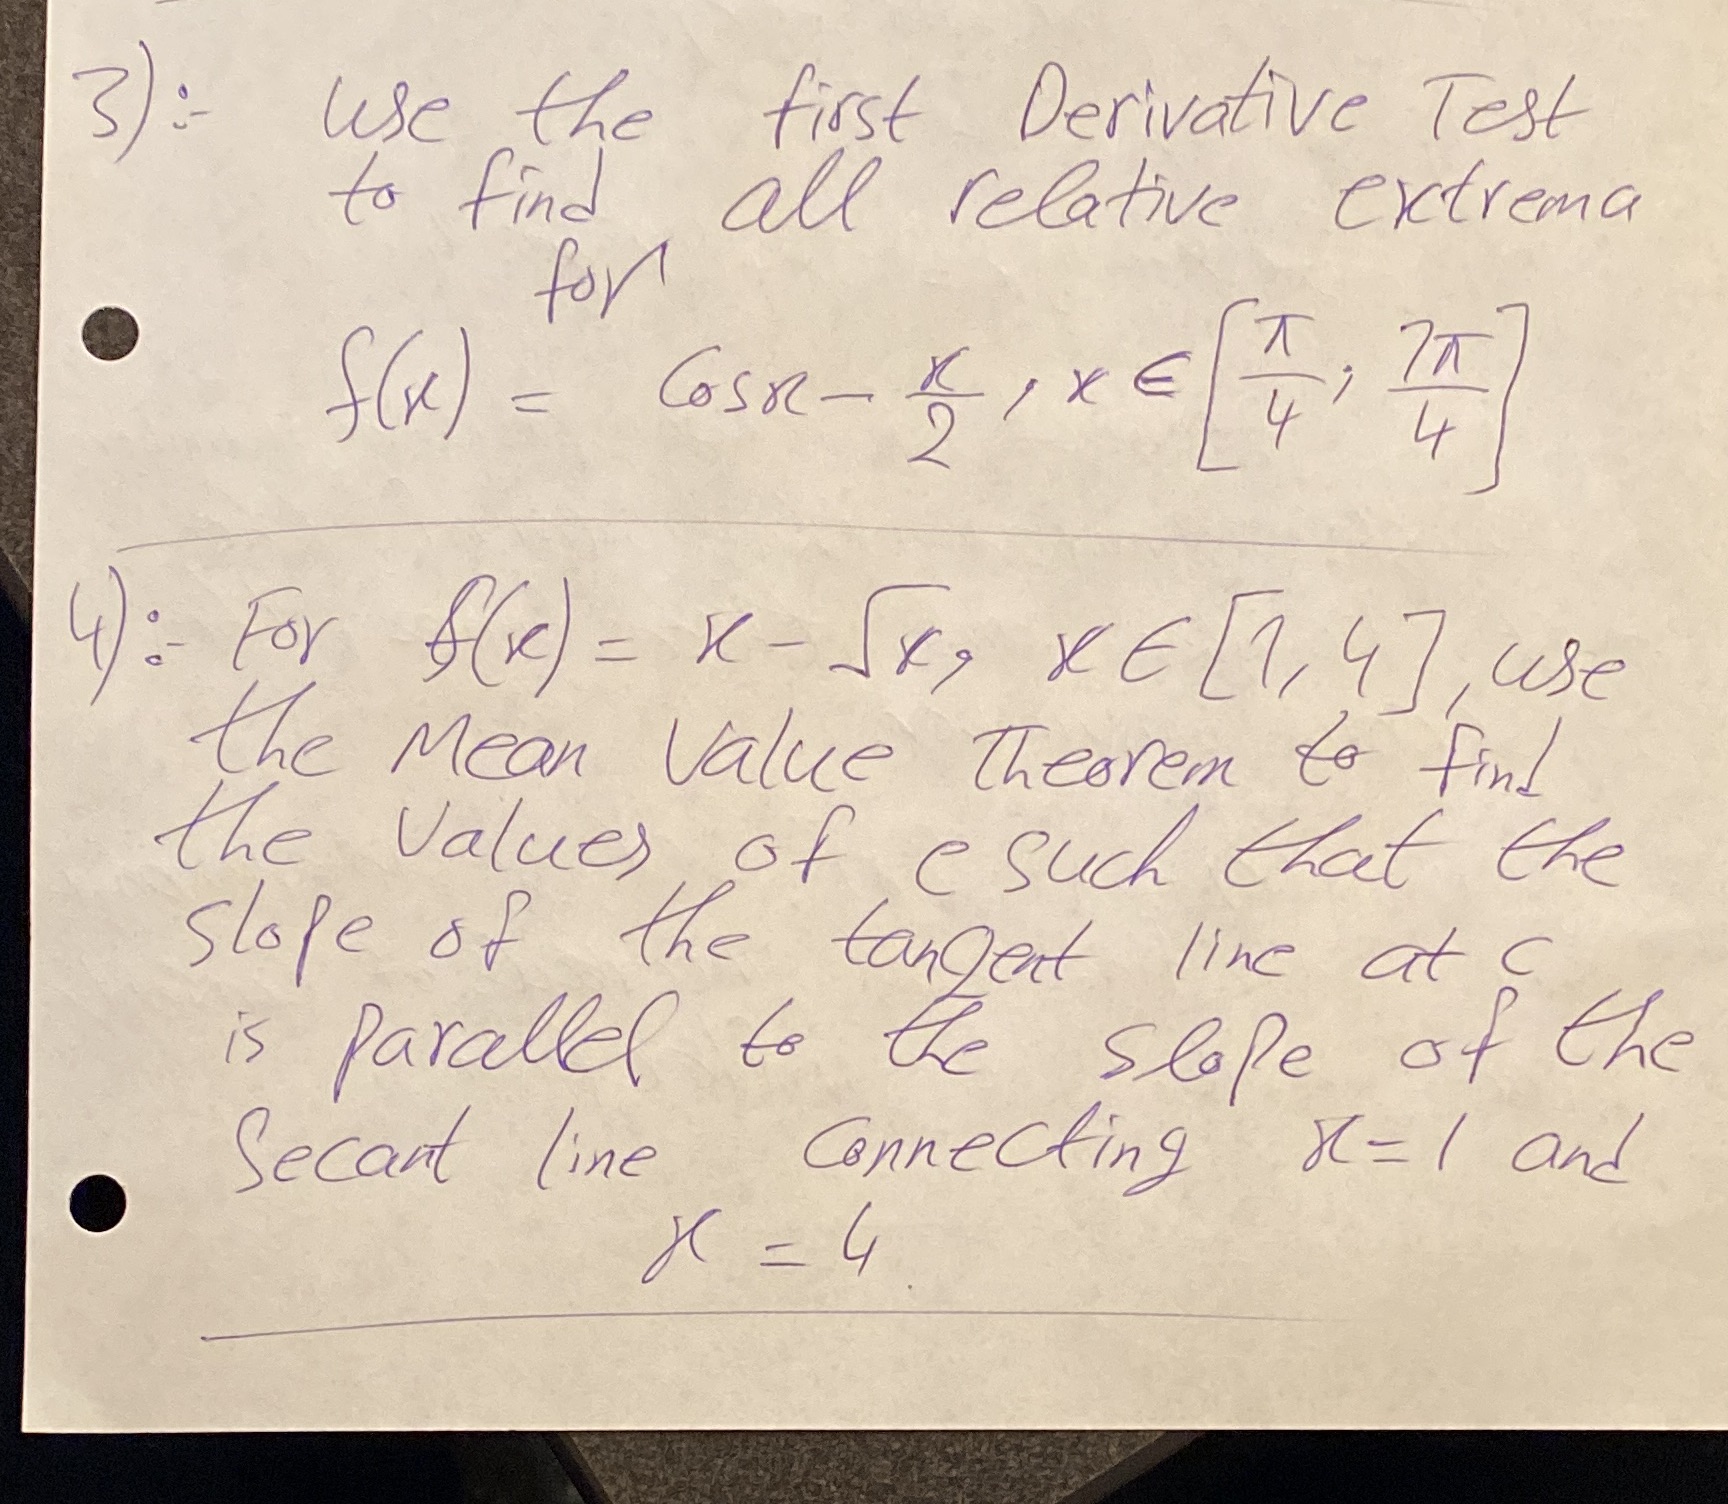 3):- Use the first Derivative Test
to find all relative extrema
for
f(x) = Cosx - x/2, x ∈ [π/4; 7π/4]
4):- For f(x) = x - √x, x ∈ [1, 4], use
the Mean Value Theorem to find
the values of c such that the
slope of the tangent line at c
is parallel to the slope of the
Secant line Connecting x=1 and
x = 4.